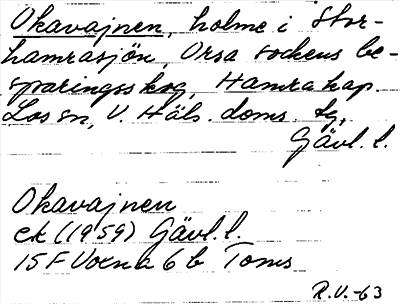 Okavajnen, holme i Stor-
hamrasjön, Orsa sockens be-
sparingsskog, Hamra kap.
Los sn, V. Häls. doms. tg,
Gävl. l.
Okavajnen
ek (1959) Gävl. l.
15F Voxna 6b Toms
R.V.-63